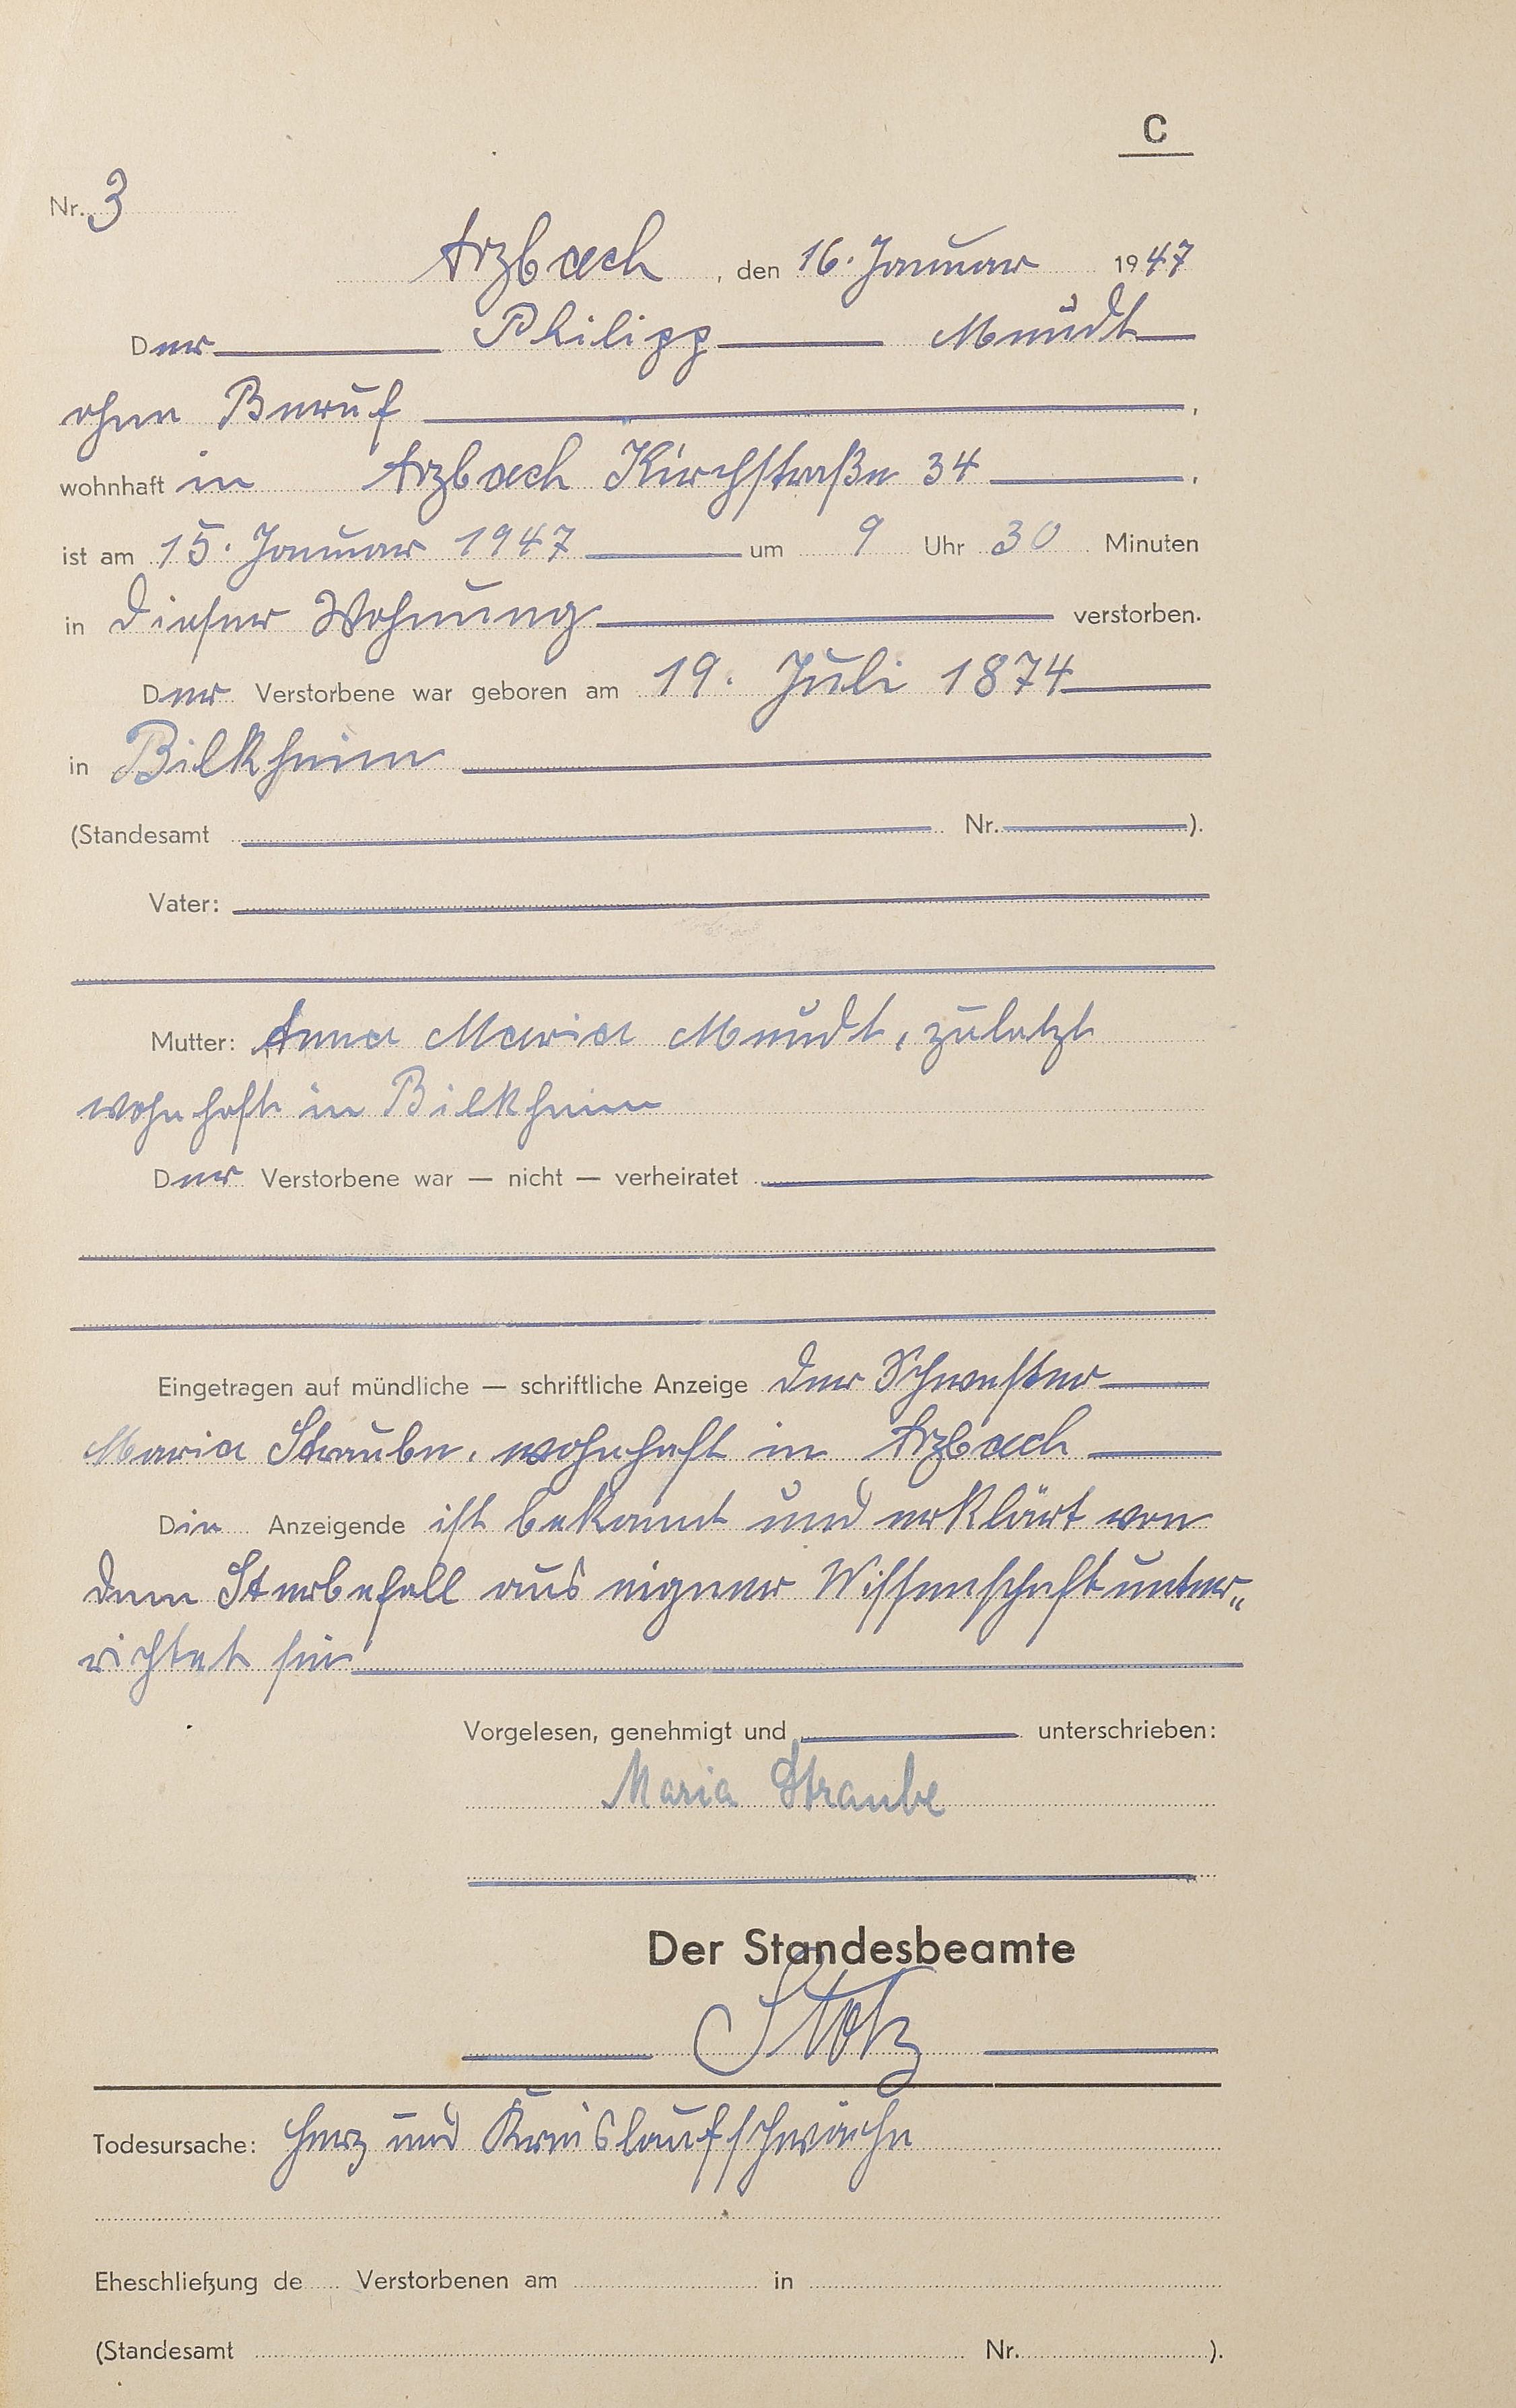 C
Nr. 3
Arzbach, den 16. Januar 1947
Der Philipp Meudt
ohne Beruf,
wohnhaft in Arzbach Kirchstraße 34,
ist am 15. Januar 1947 um 9 Uhr 30 Minuten
in dieser Wohnung verstorben.
Der Verstorbene war geboren am 19. Juli 1874
in Bilkheim
(Standesamt Nr. ).
Vater:
Mutter: Anna Maria Meudt, zuletzt
wohnhaft in Bilkheim
Der Verstorbene war — nicht — verheiratet
Eingetragen auf mündliche — schriftliche Anzeige der Schwester
Maria Straube, wohnhaft in Arzbach
Die Anzeigende ist bekannt und erklärt von
dem Sterbefall aus eigener Wissenschaft unter„
richtet sein
Vorgelesen, genehmigt und unterschrieben:
Maria Straube
Der Standesbeamte
Stotz
Todesursache: Herz und Kreislaufschwäche
Eheschließung de Verstorbenen am in
(Standesamt Nr. ).